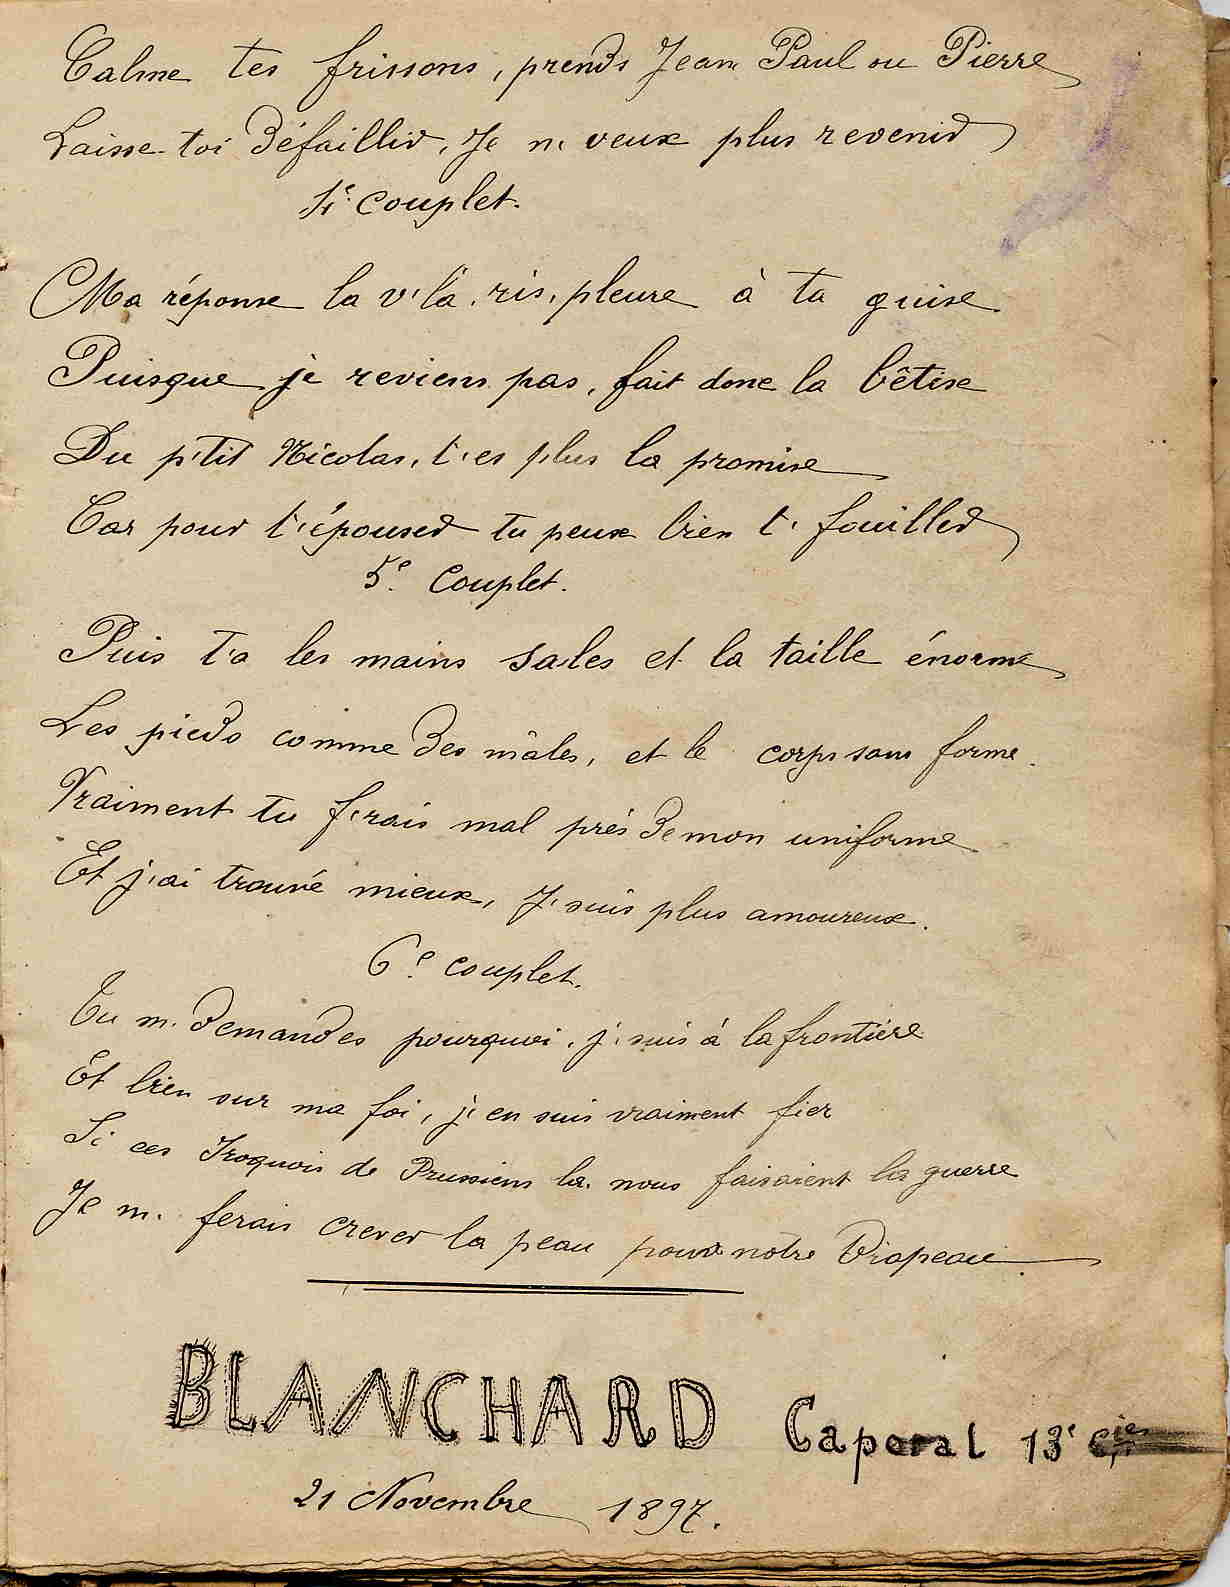 Calme tes frissons, prends Jean Paul ou Pierre
Laisse-toi défaillir, Je n' veux plus revenir
4e couplet.
Ma réponse la v'là, ris, pleure à ta guise
Puisque je reviens pas, fait donc la bêtise
Du p'tit Nicolas, t'es plus la promise
Car pour t'épouser tu peux bien t' fouiller
5e Couplet.
Puis t'a les mains sales et la taille énorme
Les pieds comme des mâles, et le corps sans forme.
Vraiment tu f'rais mal près de mon uniforme
Et j'ai trouvé mieux, J' suis plus amoureux.
6e couplet.
Tu m' demandes pourquoi, j' suis à la frontière
Et bien sur ma foi, j'en suis vraiment fier
Si ces Iroquois de Prussiens la nous faisaient la guerre
Je m' ferais crever la peau pour notre Drapeau.
BLANCHARD Caporal 13e Cie
21 Novembre 1897.